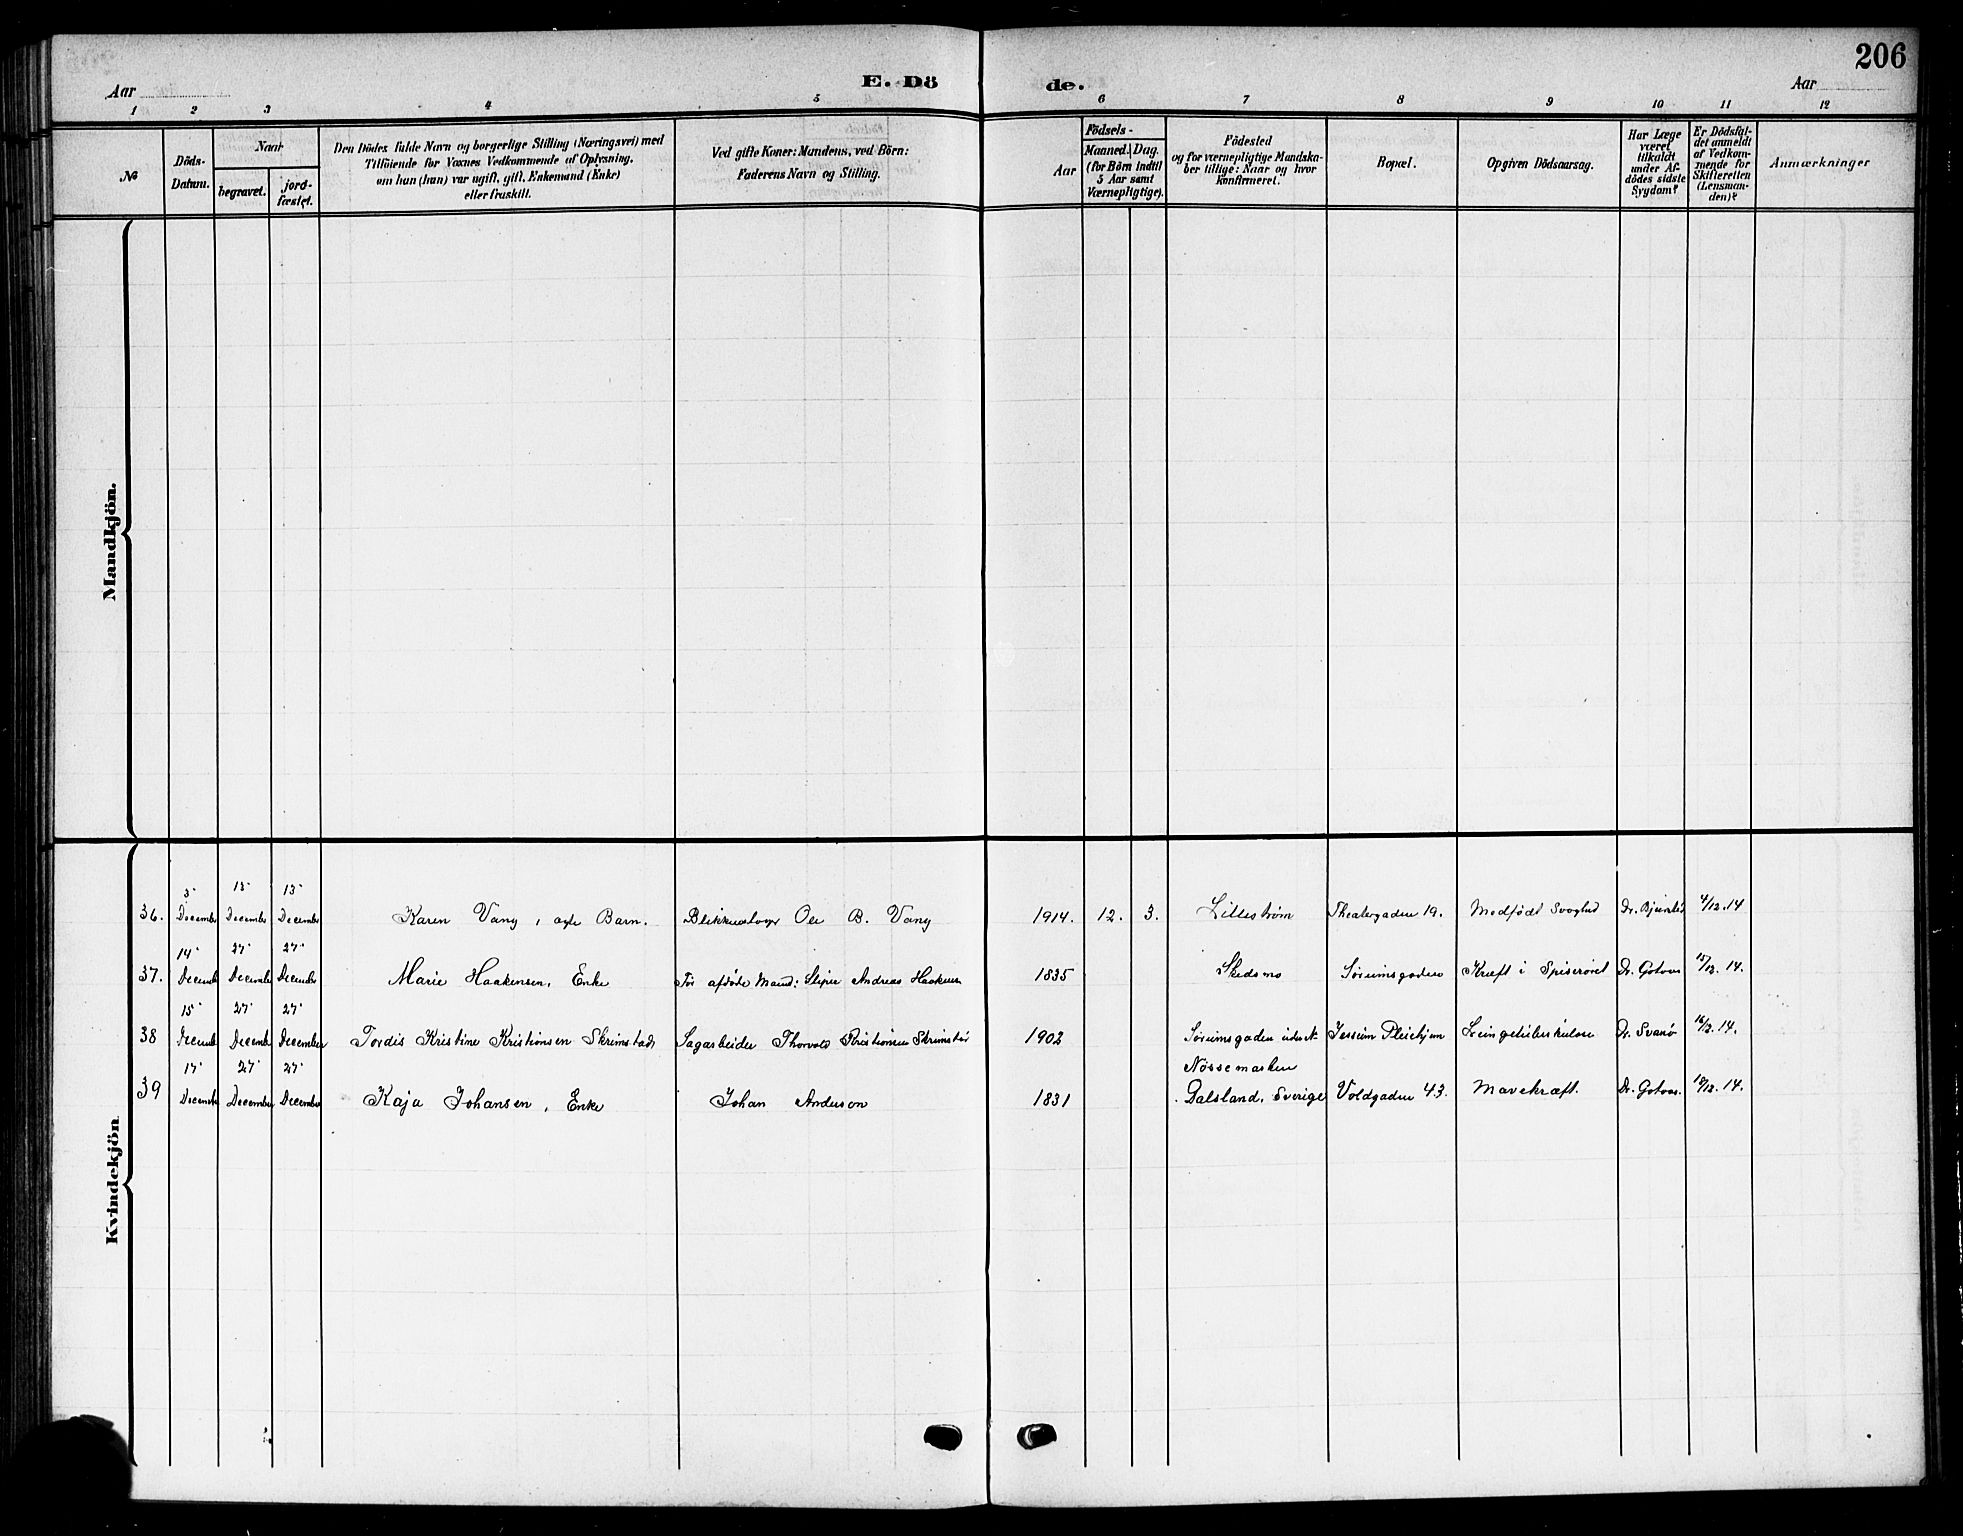 206
Aar
E. Dö
de.
Aar
1 2 3 4 5 6 7 8 9 10 11 12
№
Döds-
Datum.
Naar
begravet.
jord-
fæstet.
Den Dödes fulde Navn og borgerlige Stilling (Næringsvei) med
Tilföiende for Voxnes Vedkommende af Oplysning,
om han (hun) var ugift, gift, Enkemand (Enke)
eller fraskilt.
Ved gifte Koner: Mandens, ved Börn:
Faderens Navn og Stilling.
Aar
Födsels-
Maaned. Dag.
(for Börn indtil
5 Aar samt
Værnepligtige).
Födested
og for værnepligtige Mandska-
ber tillige: Naar og hvor
konfirmeret.
Bopæl.
Opgiven Dödsaarsag.
Har Læge
været
tilkaldt
under Af-
dödes sidste
Sygdom?
Er Dödsfal-
det anmeldt
af Vedkom-
mende for
Skifteretten
(Lensman-
den)?
Anmærkninger
Mandkjön.
Kvindekjön
36. December December December Karen Vang, Barn. Ole B. Vang 1914. 12. 3. Lillestrøm Theatergaden 19. Medfödt Svaghed 4/12.14
14 27 27
37. December December December Marie Haakensen, Enke afdöde Mand: Andreas Haakensen 1835 Skedsmo Sørumsgaden Kræft i Spiserøret Dr. Gotaas 15/12.14.
15 27 27
38 December December December Tordis Kristine Kristiansen Skrimstad Sagarbeider Thorvald Kristiansen Skrimstad 1902 Sørumsgaden Jessheim Pleiehjem Lungetuberkulose Dr. Svanø 16/12.14.
17 27 27
Nössemarken
39 December December December Kaja Johansen, Enke Johan Anderson 1831 Dalsland, Sverige Voldgaden 43. Mavekræft. Dr. Gotaas. 18/12.14.